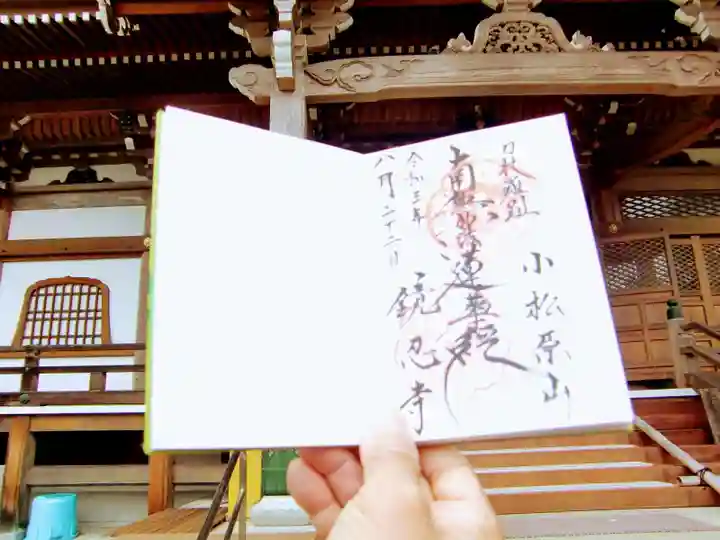 小松原山
南無妙法蓮華経
令和三年
八月二十二日
鏡忍寺